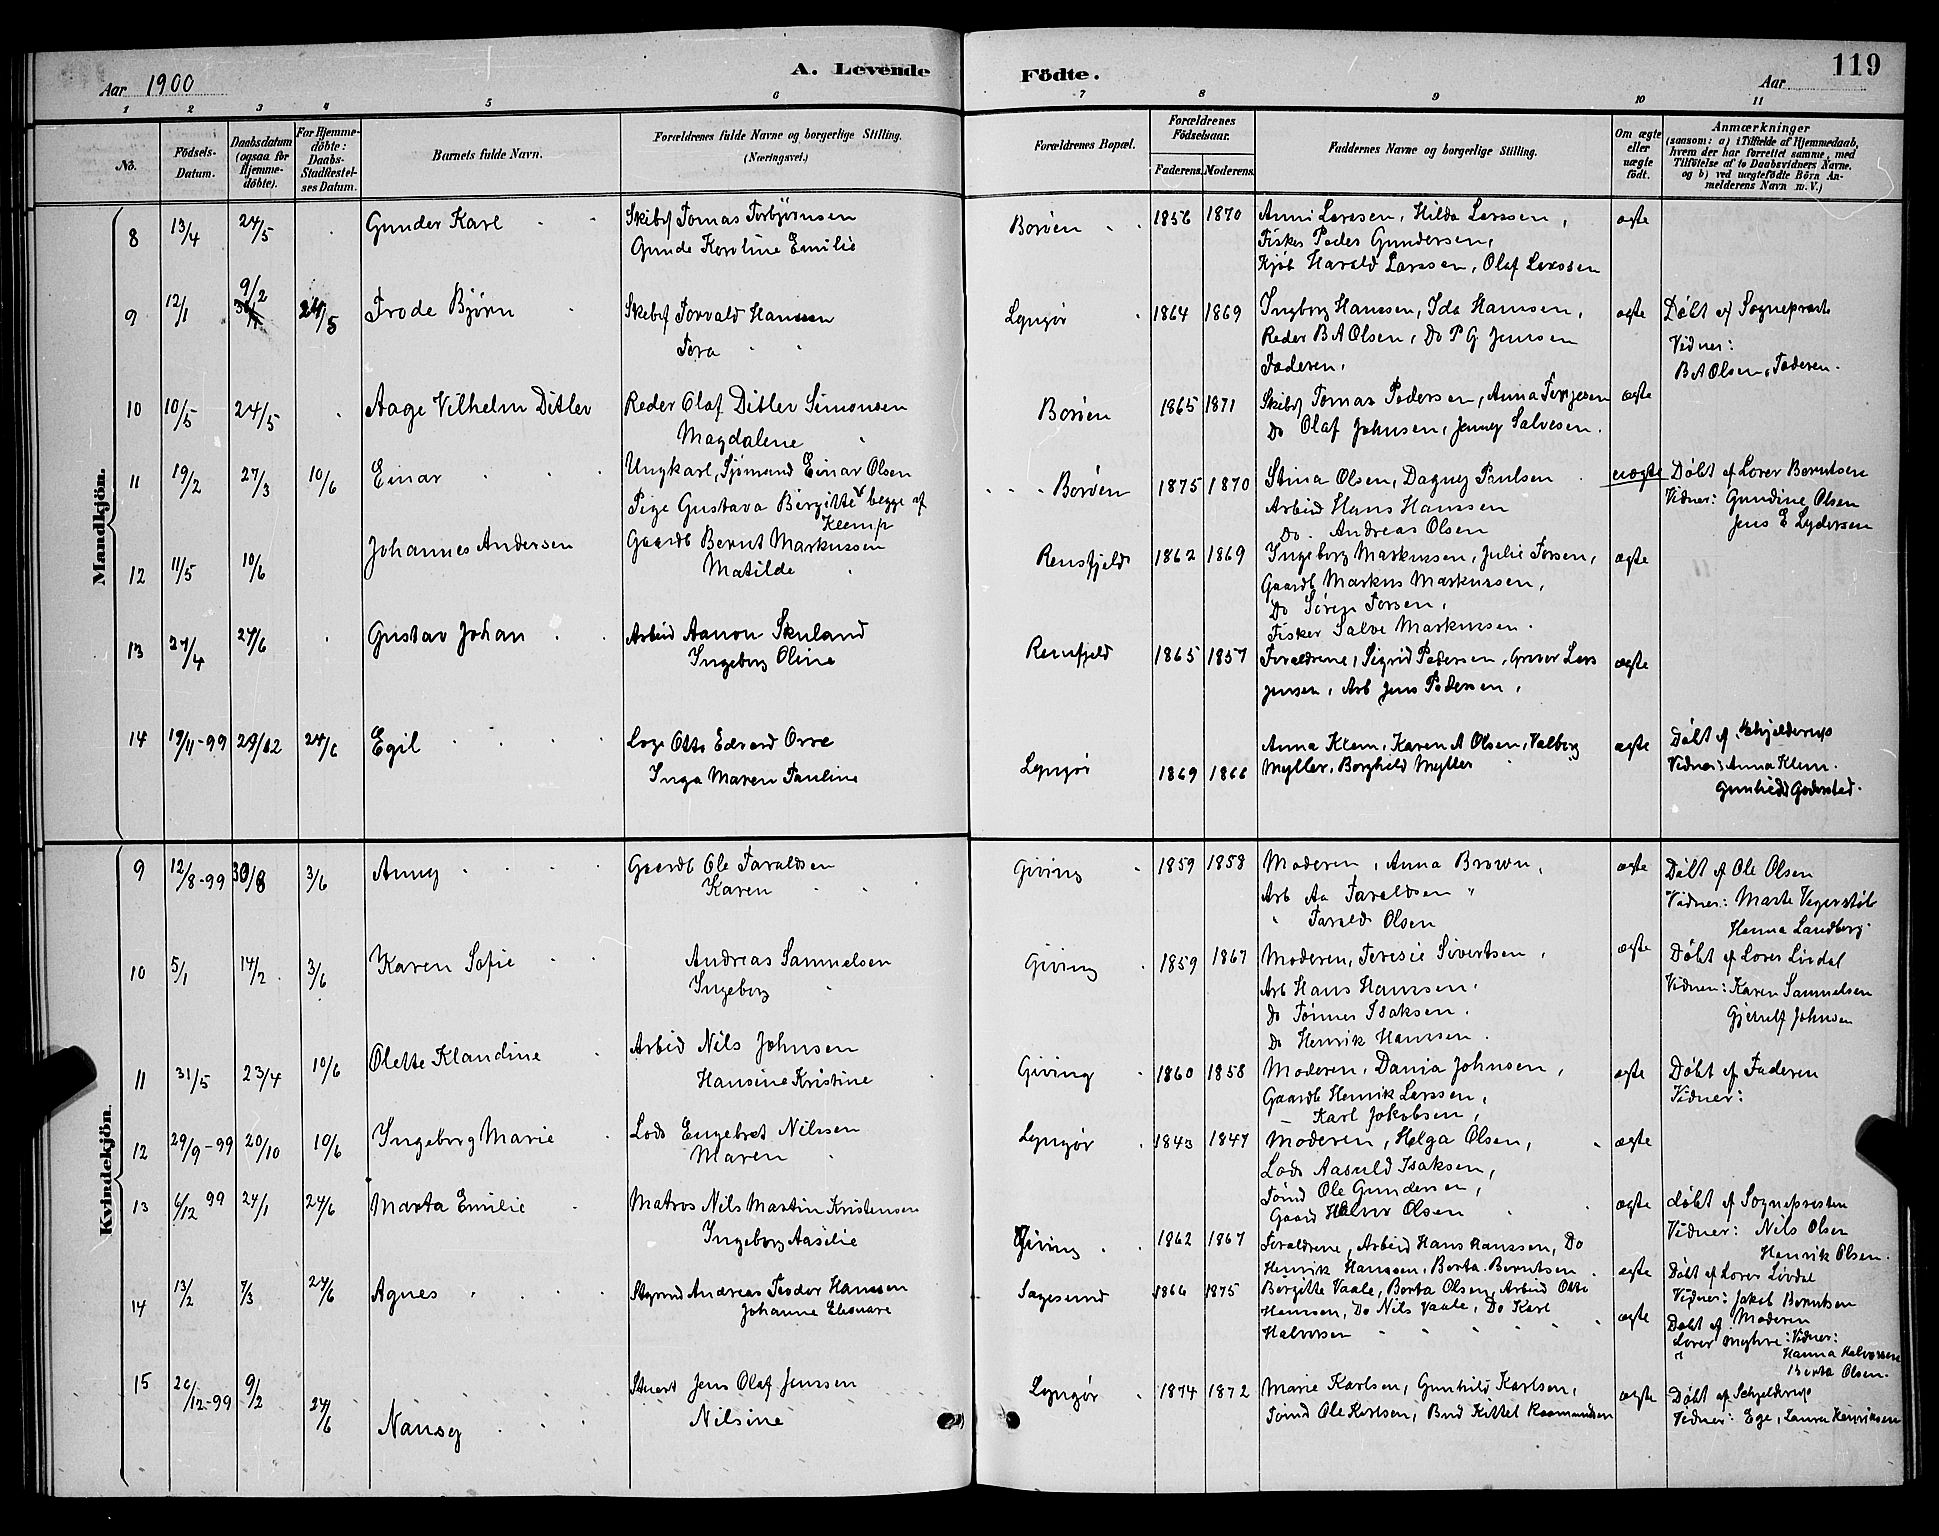 119
Aar 1900
A. Levende
Födte.
Aar
1 2 3 4 5 6 7 8 9 10 11
No.
Födsels-
Datum.
Daabsdatum
(ogsaa for
Hjemme-
döbte).
For Hjemme-
döbte:
Daabs-
Stadfæstel-
ses Datum.
Barnets fulde Navn.
Forældrenes fulde Navne og borgerlige Stilling.
(Næringsvei.)
Forældrenes Bopæl.
Forældrenes
Födselsaar.
Faderens. Moderens.
Faddernes Navne og borgerlige Stilling.
Om ægte
eller
uægte
födt.
Anmærkninger
(saasom: a) i Tilfælde af Hjemmedaab,
hvem der har forrettet samme, med
Tilföielse af to Daabsvidners Navne.
og b) ved uægtefödte Börn An-
melderens Navn m. V.)
Mandkjön.
8 13/4 24/5 Gunder Karl
Skibsf Tomas Torbjørnsen
Gunda Karoline Emilie
Borøen 1856 1870
Anni Larssen, Hilda Larssen,
Fisker Peder Gundersen,
Kjøb Harald Larssen, Olaf Larssen
ægte
9 12/1 9/2 24/5 Frode Bjørn
Skibsf Torvald Hanssen
Tora
Lyngør 1864 1869
Ingborg Hanssen, Ida Hanssen,
Reder B A Olsen, Do P G Jensen
Faderen.
ægte
Døbt af Sogneprest
Vidner:
B A Olsen, Faderen.
10 10/5 24/5 Aage Vilhelm Ditlev
Reder Olaf Ditlev Simonsen
Magdalene
Borøen 1865 1871
Skibsf Tomas Pedersen, Anna Terjesen
Do Olaf Johnsen, Jenny Salvesen.
ægte
11 19/2 27/3 10/6 Einar
Ungkarl, Sjømand Einar Olsen
Pige Gustava Birgitte begge af
Klemp
Borøen 1875 1870
Stina Olsen, Dagny Paulsen
Arbeid Hans Hanssen
Do. Andreas Olsen
uægte
Døbt af Lærer Berntsen
Vidner: Gundine Olsen
Jens E Lydersen
12 11/5 10/6 Johannes Andersen
Gaardb Bernt Markussen
Matilde
Rensfjeld 1862 1869
Ingeborg Markussen, Julie Torsen,
Gaardb Markus Markussen,
Do Søren Torsen,
Fisker Salve Markussen.
ægte
13 27/4 24/6 Gustav Johan
Arbeid Aanon Skuland
Ingeborg Oline
Rensfjeld 1865 1857
Forældrene, Sigrid Pedersen, Graver Lars
Jensen, Arb Jens Pedersen,
ægte
14 19/11-99 29/12 24/6 Egil
Otto Edvard Orre
Inga Maren Pauline
Lyngør 1869 1866
Anna Klem, Karen A Olsen, Valborg
Myller, Borghild Myller
ægte
Døbt af Schjelderup
Vidner: Anna Klem.
Gunhild
Kvindekjön.
9 12/8-99 30/8 3/6 Anny
Gaardb Ole Taraldsen
Karen
Giving 1859 1858
Moderen, Anna Brown,
Arb Aa Taraldsen "
" Tarald Olsen
ægte
Døbt af Ole Olsen
Vidner: Marte Vegerstøl
Hanna Landberg.
10 5/1 14/2 3/6 Karen Sofie
Andreas Samuelsen
Ingeborg
Giving 1859 1867
Moderen, Teresie Sivertsen,
Arb Hans Hanssen.
Do Tønnes Isaksen.
Do Henrik Hanssen.
ægte
Døbt af Lærer Livdal
Vidner: Karen Samuelsen
Johnsen
11 31/5 23/4 10/6 Olette Klaudine
Arbeid Nils Johnsen
Hansine Kristine
Giving 1860 1858
Moderen, Dania Johnsen,
Gaardb Henrik Larssen,
— Karl Jakobsen,
ægte
Døbt af Faderen
Vidner:
12 29/9-99 20/10 10/6 Ingeborg Marie
Lods Engebret Nilssen
Maren
Lyngør 1843 1847
Moderen, Helga Olsen,
Lods Aasuld Isaksen,
Tømd Ole Gundersen,
Gaard Halvor Olsen
ægte
13 6/12 99 24/1 24/6 Marta Emilie
Matros Nils Martin Kristensen
Ingeborg Aasilie
Giving 1862 1867
Forældrene, Arbeid Hans Hanssen, Do
Henrik Hanssen, Berta Berntsen
ægte
døbt af Sognepresten
Vidner: Nils Olsen
Henrik Olsen.
14 13/2 7/3 24/6 Agnes
Styrmd Andreas Teodor Hanssen
Johanne Eleonare
Sagesund 1866 1875
Birgitte Vaale, Berta Olsen, Arbeid Otto
Hanssen, Do Nils Vaale, Do Karl
Halvorsen
ægte
ægte
Døbt af Lærer Livdal
Vidner: Jakob Berntsen
Døbt af Moderen
Lærer Myhre: Vidner:
Hanna Halvorsen
Berta Olsen.
15 26/12-99 9/2 24/6 Nansy
Stuert Jens Olaf Jenssen
Nilsine
Lyngør 1874 1872
Marie Karlsen, Gunhild Karlsen,
Tømd Ole Karlsen, Kittel Rasmundsen
ægte
Døbt af Schjelderup
Vidner: Ege, Laura Henriksen